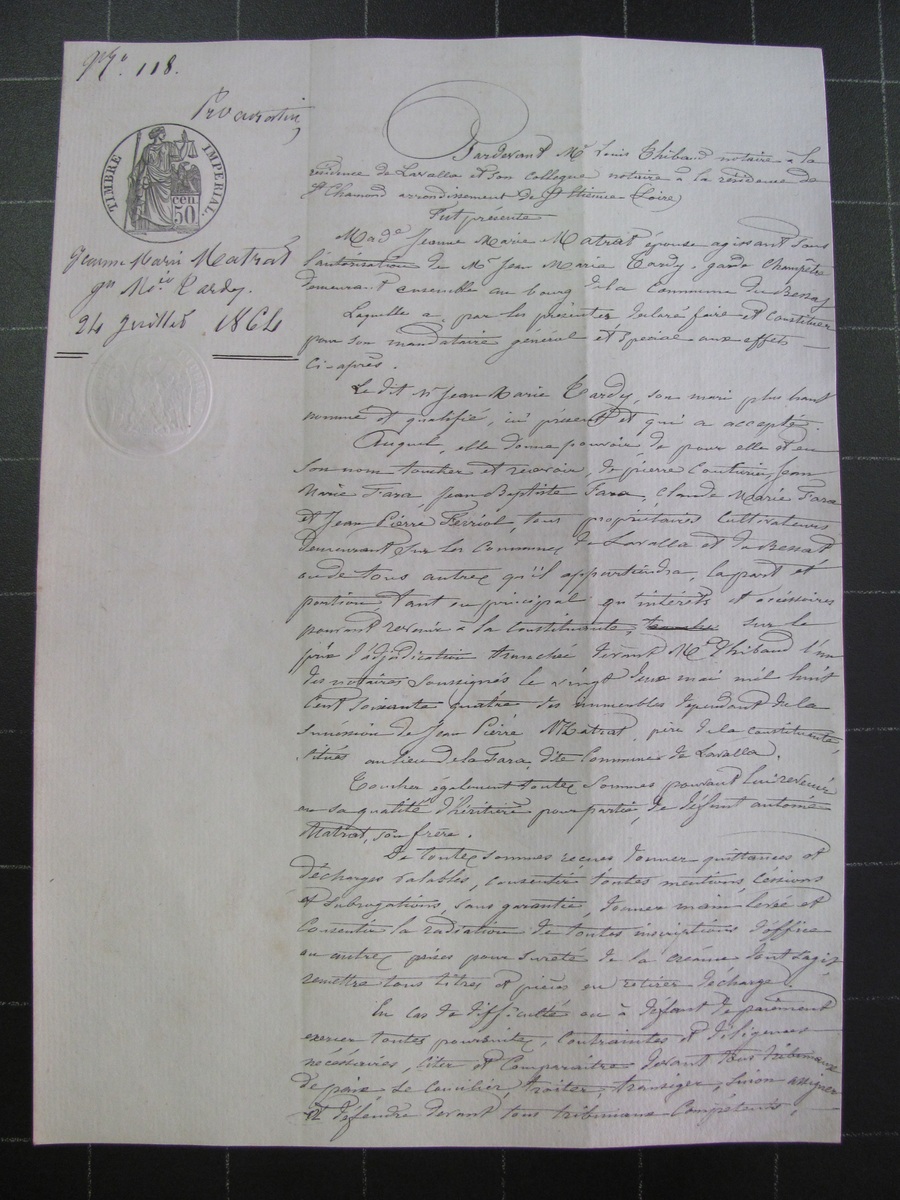 118.
Procuration
TIMBRE IMPERIAL.
cen.
50
Jeanne Marie Matrat
Tardy.
24 Juillet 1864
Pardevant Me Louis Thibaud notaire à la
résidence de Lavalla et son collegue notaire à la résidence de
St Chamond arrondissement de St Etienne (Loire)
Fut présente
Made Jeanne Marie Matrat épouse agissant sous
l'autorisation de Mr Jean Marie Tardy, garde Champêtre
demeurant ensemble au bourg de la Commune du Bessat
Laquelle a, par les présentes déclaré faire et constituer
pour son mandataire général et spécial aux effets
ci-après.
Le dit Sr Jean Marie Tardy, son mari plus haut
nommé et qualifié, ici présent et qui a accepté.
Auquel, elle donne pouvoir de pour elle et en
son nom toucher et recevoir, de pierre Couturier, Jean
Marie Fara, Jean Baptiste Fara, Claude Marie Fara
et Jean Pierre Ferriol, tous propriétaires cultivateurs
demeurant sur les Communes de Lavalla et du Bessat
ou de tous autres qu'il appartiendra, la part et
portion tant en principal qu'intérêts et accéssoires
pouvant revenir à la Constituante, sur le
prix d'adjudication tranchée devant Me Thibaud l'un
des notaires soussignés le vingt deux mai mil huit
cent soixante quatre des immeubles dépendant de la
succession de Jean Pierre Matrat, père de la constituante
situés au lieu de la Fara, dite Commune de Lavalla.
Toucher également toutes sommes pouvant lui revenir
en sa qualité d'héritière pour partie, de défunt antoine
Matrat, son frère.
De toutes sommes recues donner quittances et
décharges valables, consentir toutes mentions, cessions
et subrogations, sans garantie, donner main levée et
Consentir la radiation de toutes inscriptions d'office
ou autres prises pour sureté de la créance dont s'agit
remettre tous titres et pièces en retirer décharge.
En cas de difficultés ou à défaut de paiement
exercer toutes poursuites, contraintes et diligences
nécéssaires, citer et Comparaître devant tous tribunaux
de paix se concilier, traiter, transiger, sinon assigner
et défendre devant tous tribunaux Compétents,